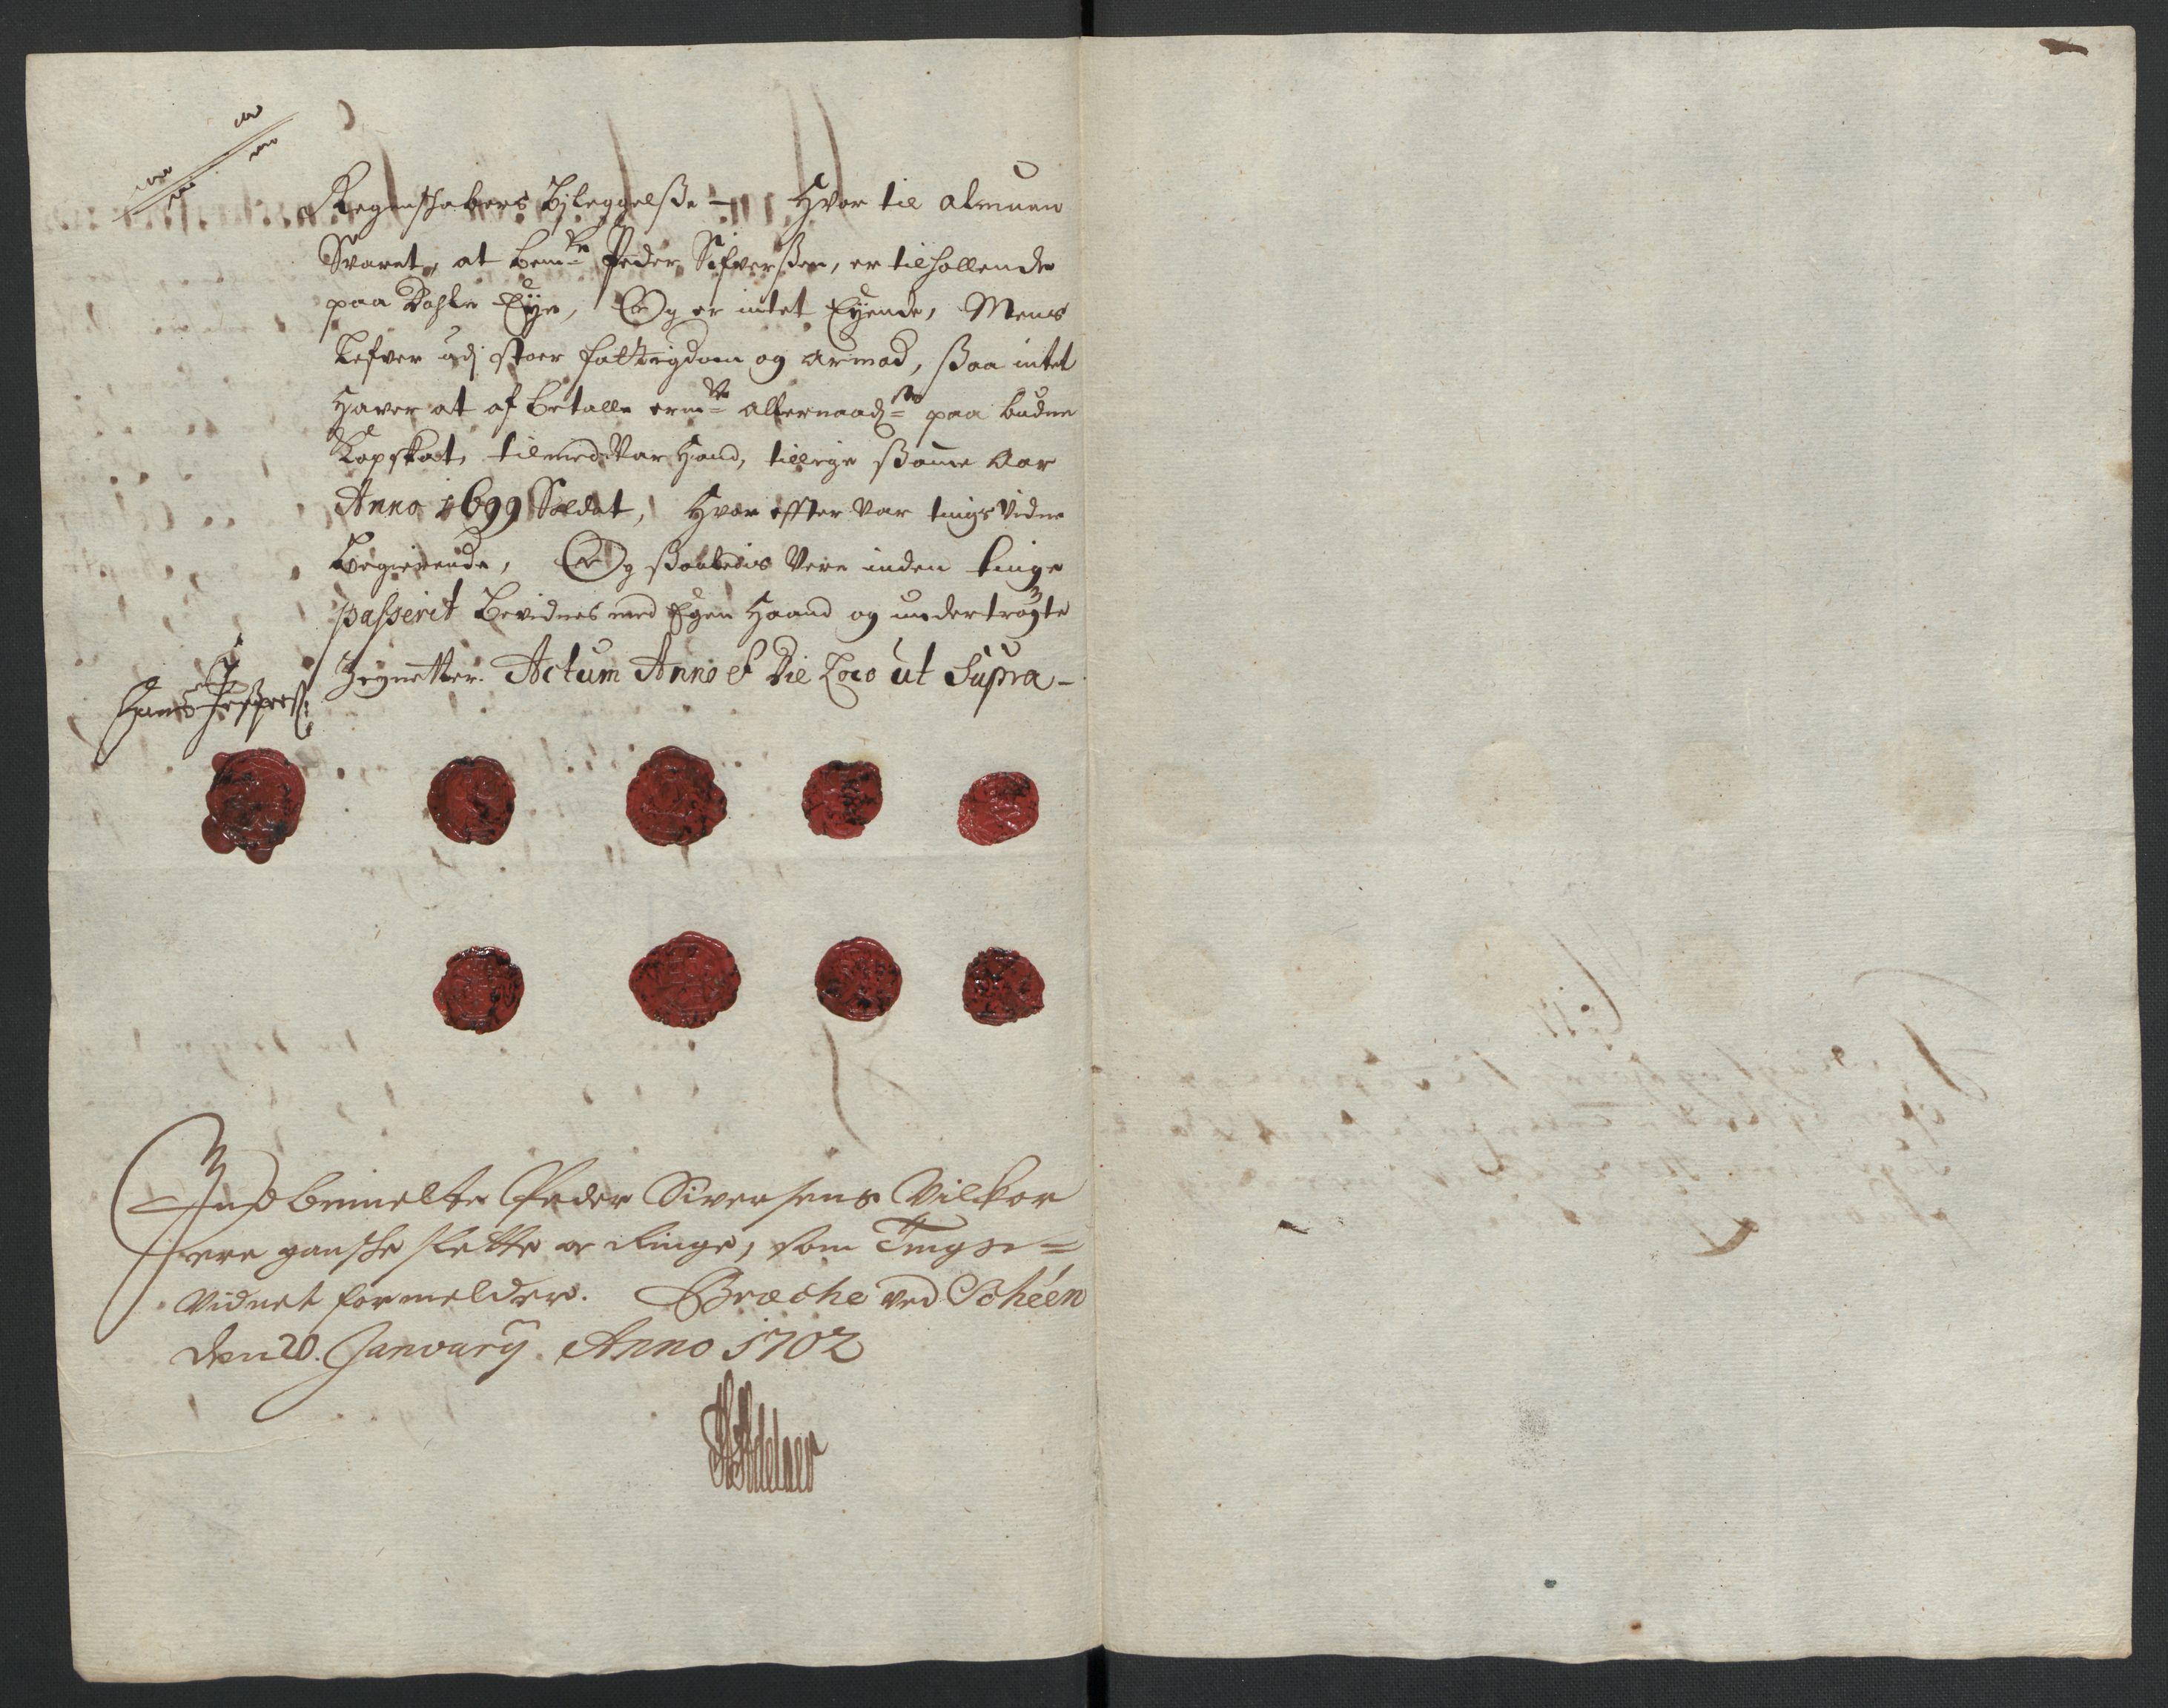 Regenschabers Bjleggelße — Hvor til almuen
Svaret, at bem:te Peder Sifverßen, er tilhollende
paa Dahle Eye, Og er intet Eyende, Mens
Lefver udj stoer fattigdom og armod, ßaa intet
Haver at af betalle erm:te allernaad:ste paa budne
Kopskat, tilmed var Hand, tillige ßamme Aar
Anno 1699 Soldat, Hvor effter var tingsvidne
Begierende, Og ßaaledis Vere inden tinge
passerit Bevidnes med Egen Haand og undertrögte
Zignetter. Actum Anno & Die Loco ut Supra —
Hans
Indbemelte Peder Siversens Vilkor
ere gansche slette oc Ringe, som Tings=
Vidnet formelder. Brache ved Schéen
den 20. Januarij Anno 1702
Adelaer